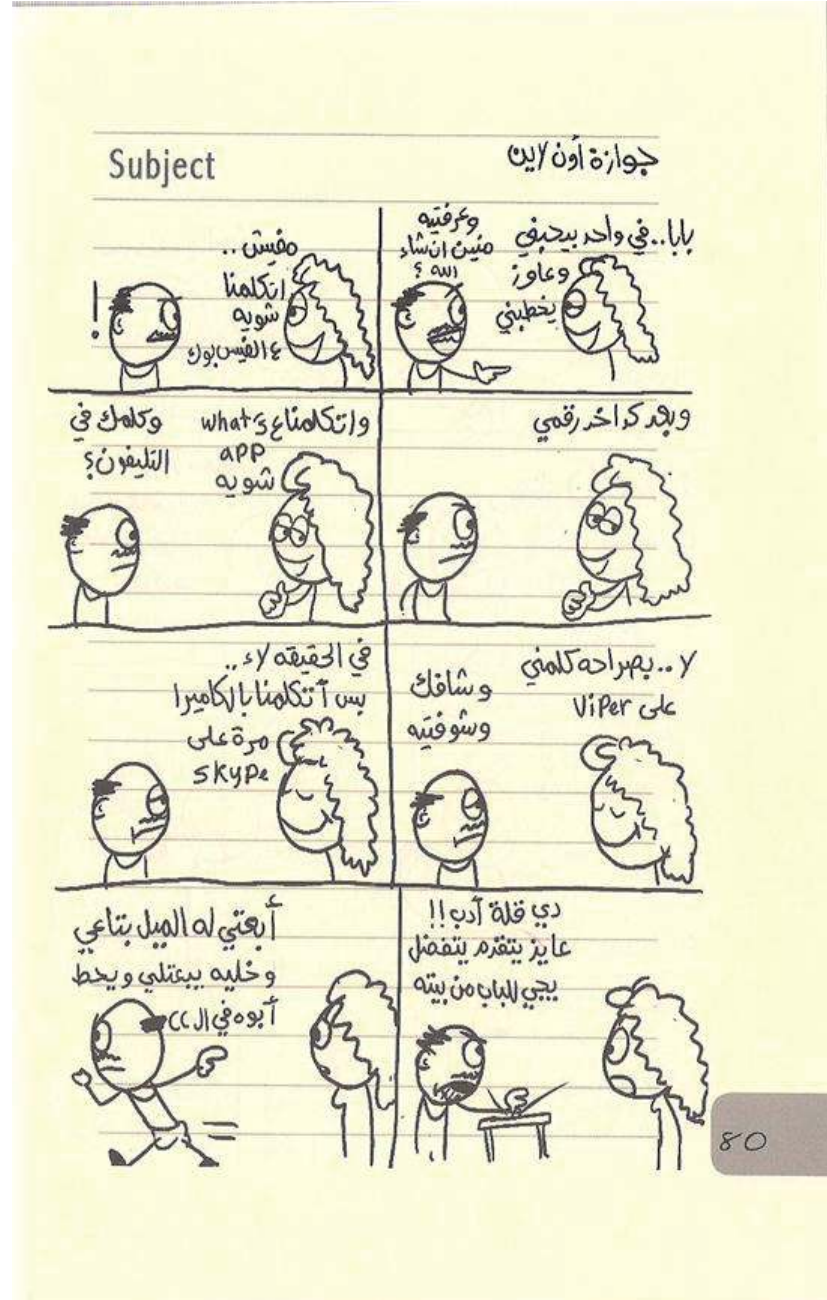 Subject
جوازة أون لاين
بابا.. في واحد بيحبني
وعاوز
يخطبني
وعرفتيه
منين ان شاء
الله ؟
مفيش ..
اتكلمنا
شويه
ع الفيس بوك
!
وبعد كدا خد رقمي
واتكلمنا ع what's
app
شويه
وكلمك في
التليفون؟
لا .. بصراحه كلمني
على ViPer
وشافك
وشوفتيه
في الحقيقه لاء ..
بس أتكلمنا بالكاميرا
مرة على
SKYPe
دي قلة أدب !!
عايز يتقدم يتفضل
يجي للباب من بيته
أبعتي له الميل بتاعي
وخليه يبعتلي ويحط
أبوه في ال CC
80